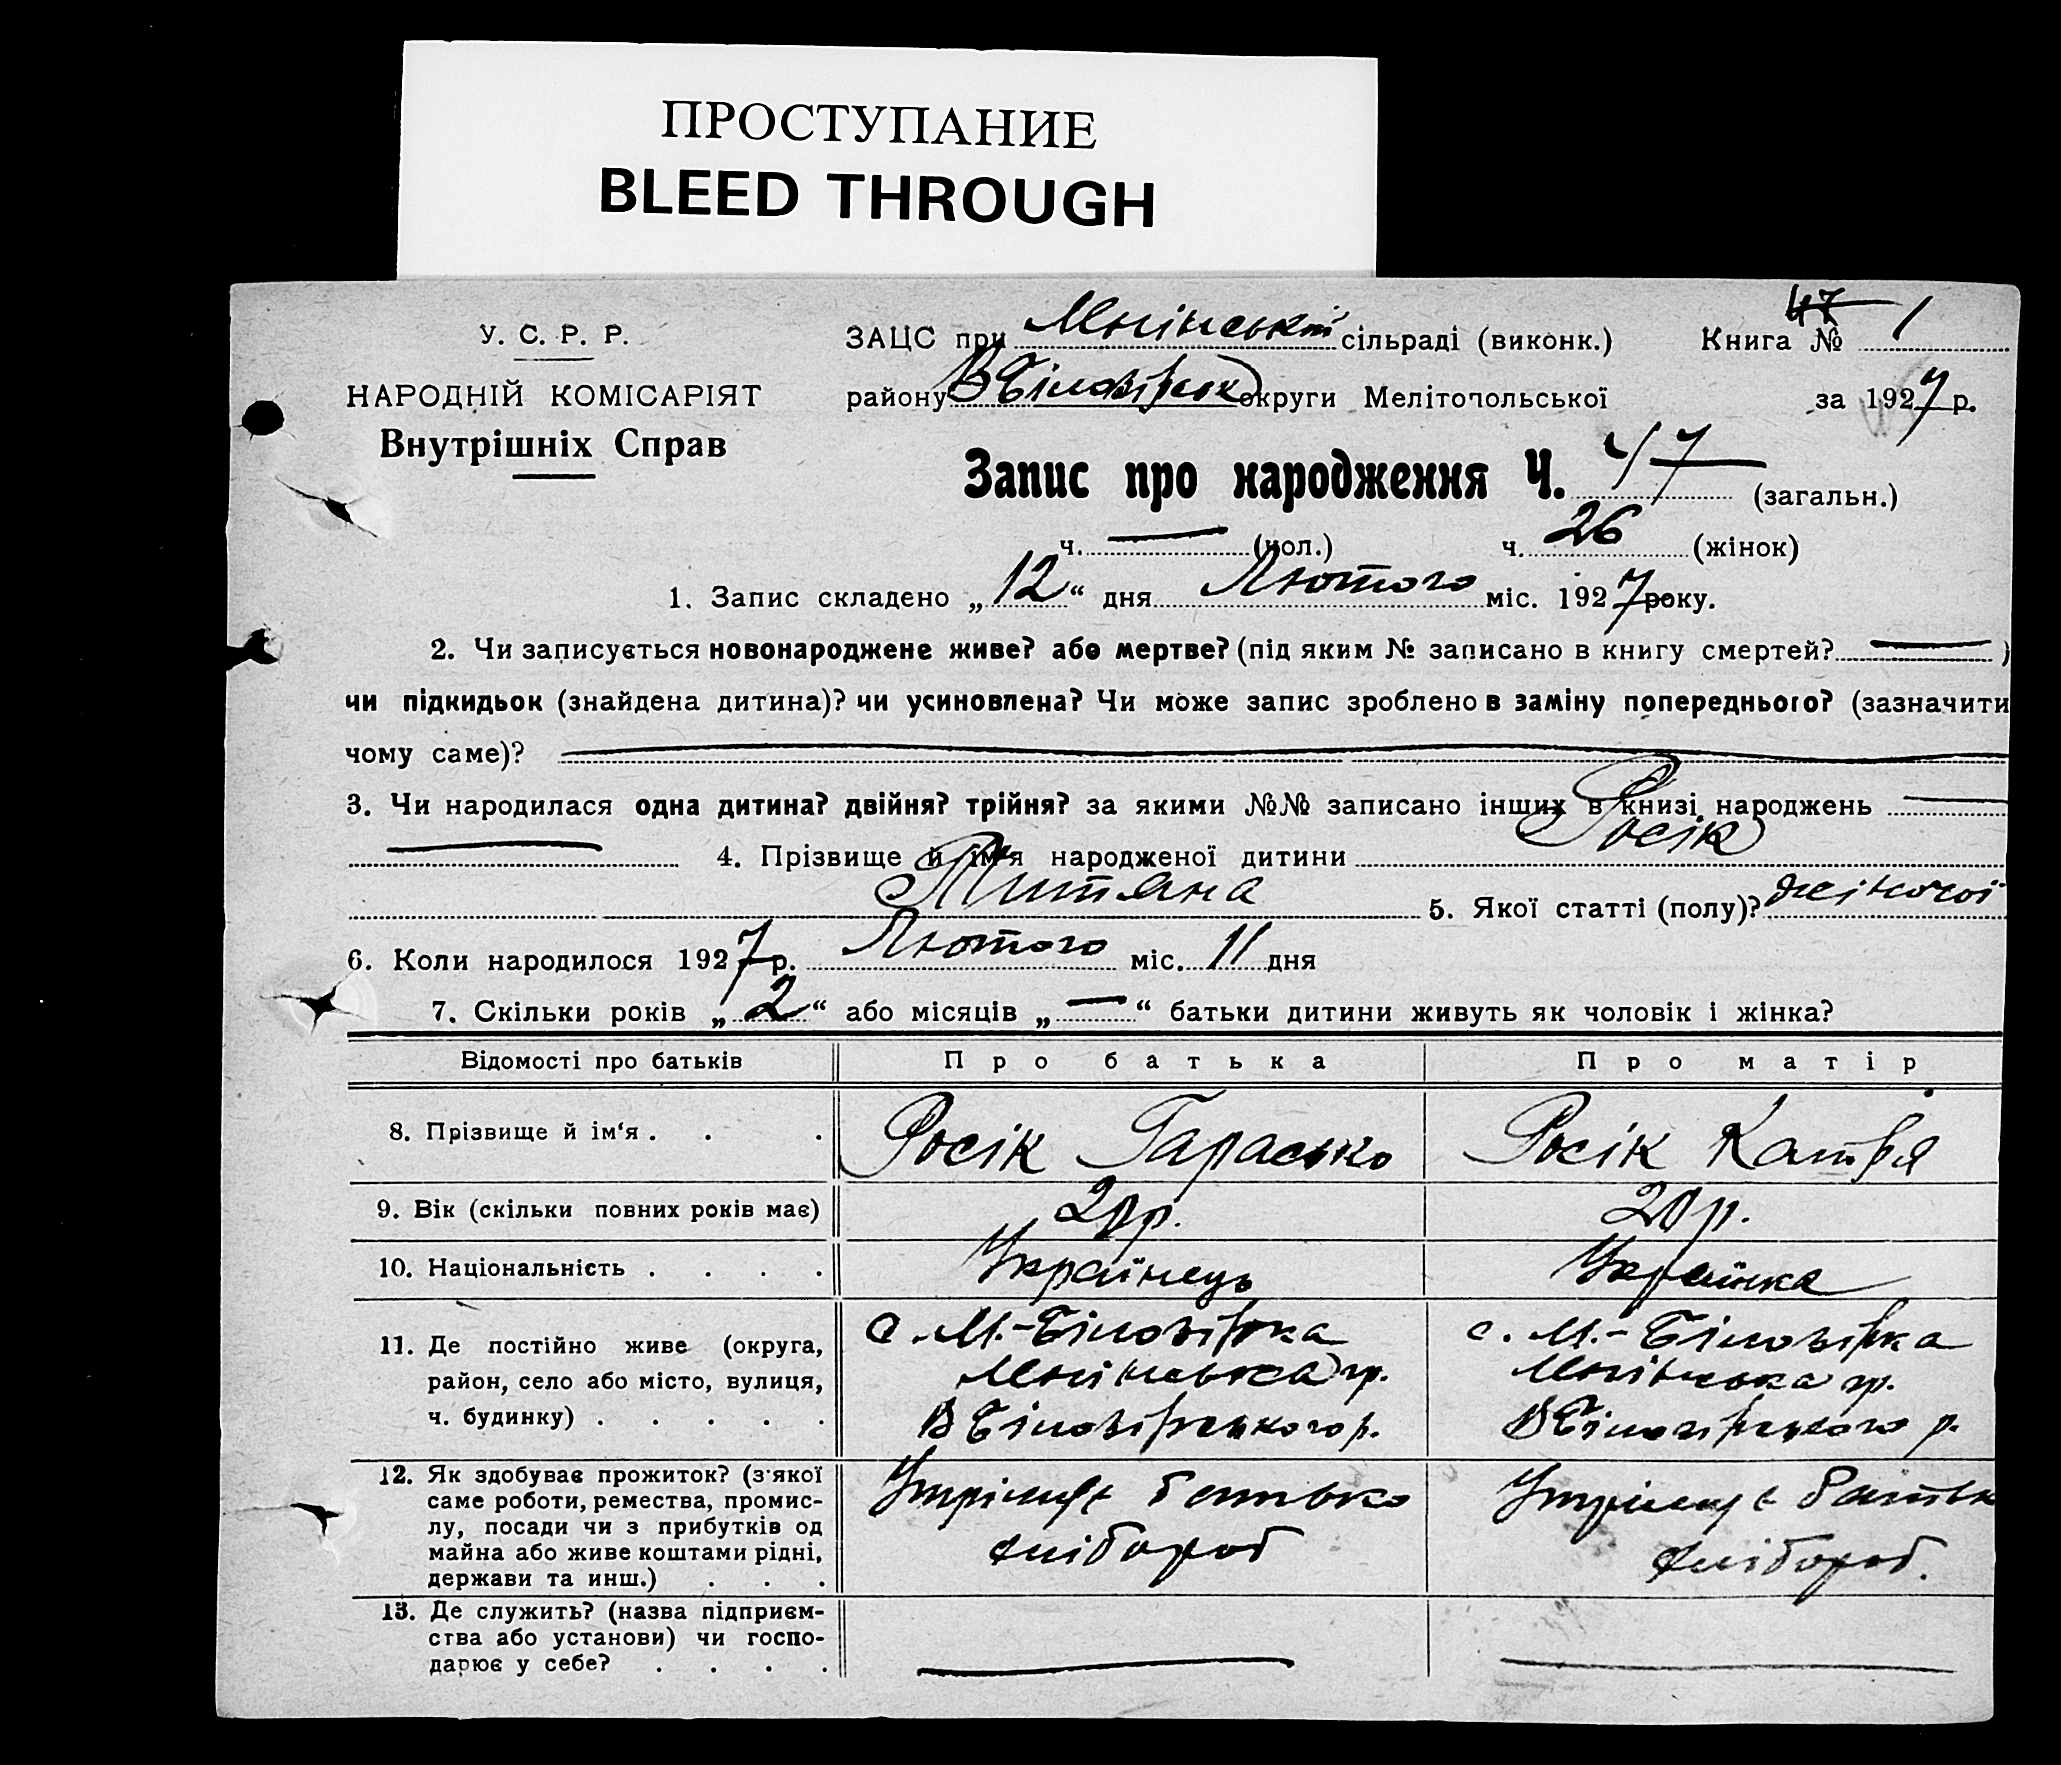 ПРОСТУПАНИЕ
BLEED THROUGH
У. С. Р. Р.
НАРОДНІЙ КОМІСАРІЯТ
Внутрішніх Справ
ЗАЦС при сільраді (виконк.)
Книга № 47 1
району В Біловірськ округи Мелітопольської за 1927 р.
Запис про народження Ч. 47 (загальн.)
ч. — (чол.) ч. 26 (жінок)
1. Запис складено „12“ дня Лютого міс. 1927 року.
2. Чи записується новонароджене живе? або мертве? (під яким № записано в книгу смертей? — )
чи підкидьок (знайдена дитина)? чи усиновлена? Чи може запис зроблено в заміну попереднього? (зазначити
чому саме)? —
3. Чи народилася одна дитина? двійня? трійня? за якими №№ записано інших в книзі народжень —
— 4. Прізвище й ім'я народженої дитини Росік
Титяна 5. Якої статті (полу)? жіночої
6. Коли народилося 1927 р. Лютого міс. 11 дня
7. Скільки років „2“ або місяців „—“ батьки дитини живуть як чоловік і жінка?
Відомості про батьків Про батька Про матір
8. Прізвище й ім‘я . . . Росік Гарасько Росік Катря
9. Вік (скільки повних років має) 20 р. 20 р.
10. Національність . . . . Українець Українка
11. Де постійно живе (округа, с. М.-Біловірка с. М.-Біловірка
район, село або місто, вулиця, гр. гр.
ч. будинку) . . . . . В Біловірського р. В Біловірського р.
12. Як здобуває прожиток? (з'якої Утримує батько Утримує батьк
саме роботи, ремества, промис-
лу, посади чи з прибутків од хлібороб хлібороб.
майна або живе коштами рідні,
держави та инш.) . . .
13. Де служить? (назва підприєм-
ства або установи) чи госпо-
дарює у себе? . . . . — —